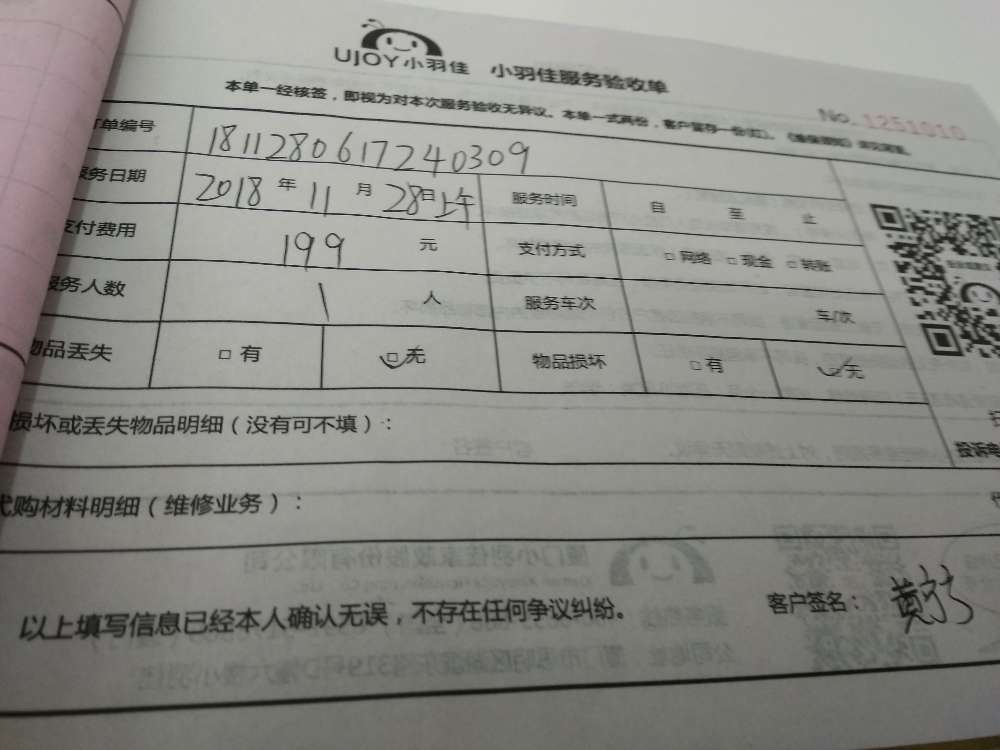 UJOY小羽佳 小羽佳服务验收单
本单一经核签，即视为对本次服务验收无异议。本单一式两份，客户留存一份
No. 1251010
订单编号 181128061724030​9
服务日期 2018 年 11 月 28日上午 服务时间 自 至 止
支付费用 199 元 支付方式 □ 网络 □ 现金 □ 转账
服务人数 1 人 服务车次 车/次
物品丢失 □ 有 □ 无 物品损坏 □ 有 □ 无
损坏或丢失物品明细（没有可不填）：
投诉电
代购材料明细（维修业务）：
以上填写信息已经本人确认无误，不存在任何争议纠纷。 客户签名：